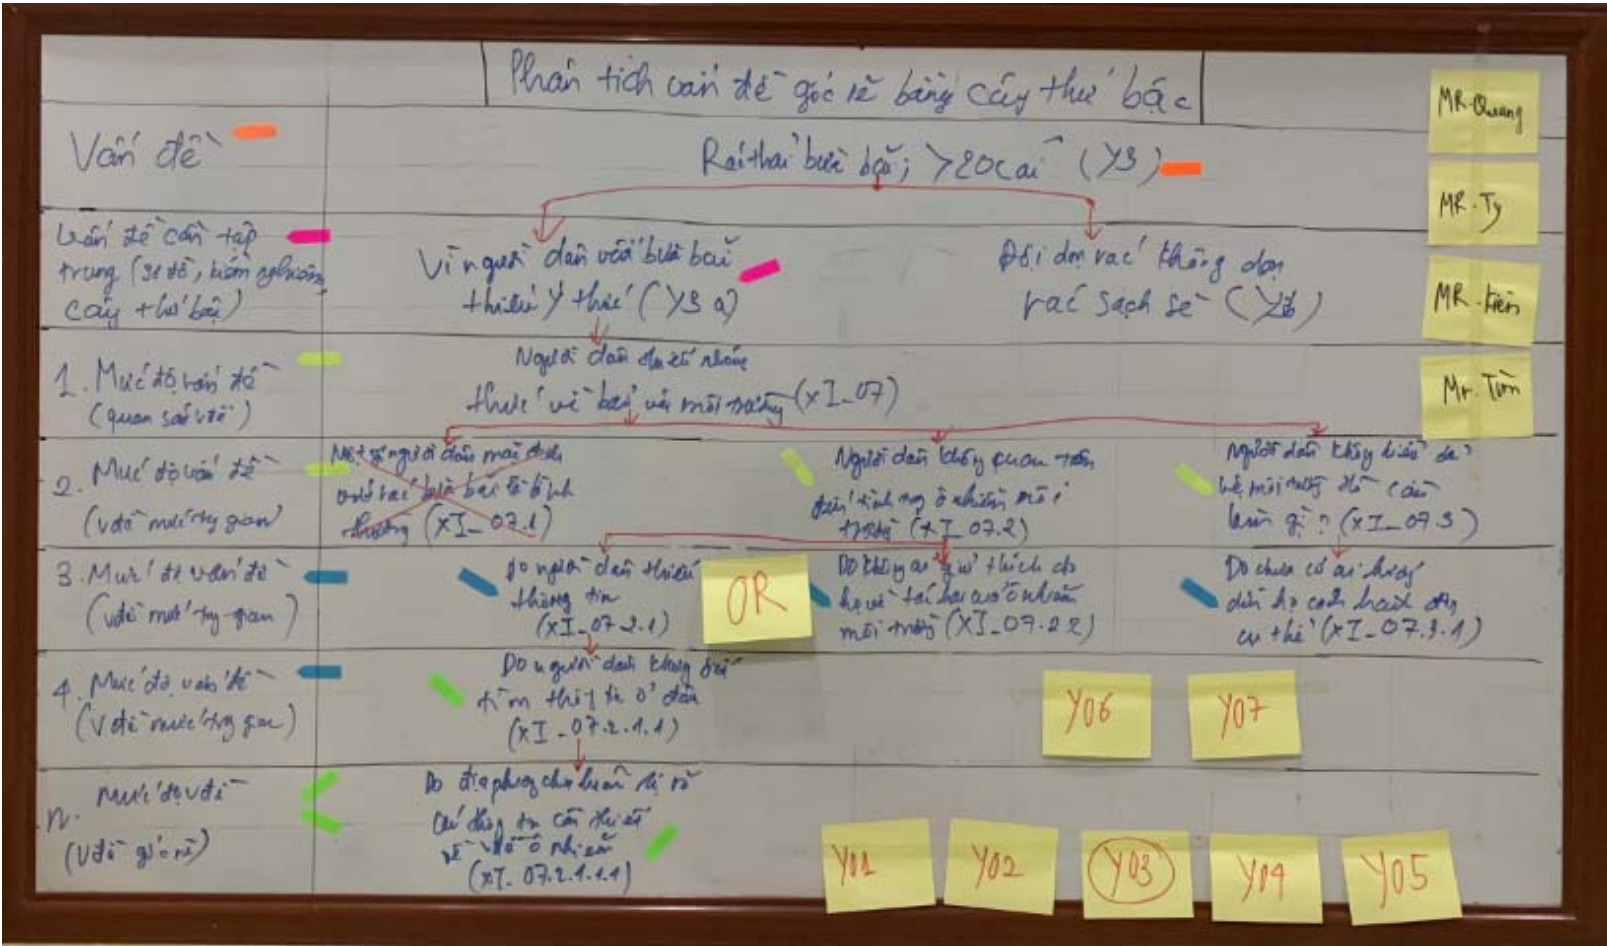 Phân tích vấn đề gốc rễ bằng cây thứ bậc
Vấn đề
Rác thải bừa bãi; >20cái (Y3)
Vấn đề cần tập
trung (sơ đồ,
cây thứ bậc)
Vì người dân vứt bừa bãi
thiếu ý thức (Y3 a)
Đội dọn rác không dọn
rác sạch sẽ
1. Mức độ vấn đề
(quan sát
Người dân
thức về bảo vệ môi trường (xI_07)
2. Mức độ vấn đề
(vđề mức tg gian)
Một số người dân
vứt rác bừa bãi là bình
thường (xI_07.1)
Người dân không quan tâm
đến tình ô nhiễm môi
trường (xI_07.2)
Người dân không biết
vệ môi trường thì cần
làm gì? (xI_07.3)
3. Mức độ vấn đề
(vđề mức tg gian)
Do người dân thiếu
thông tin
(xI_07.2.1)
OR
Do không ai giải thích cho
họ về tác hại ô nhiễm
môi trường (xI_07.2.2)
Do chưa có ai hướng
dẫn họ cách hành động
cụ thể (xI_07.3.1)
4. Mức độ vấn đề
(vđề mức tg gian)
Do người dân không biết
tìm thông tin ở đâu
(xI_07.2.1.1)
n. Mức độ vđề
(vđề gốc rễ)
Do địa phương chuẩn bị
cần thiết
về ô nhiễm
(xI_07.2.1.1.1)
MR-Quang
MR-Ty
MR-Kiên
Mr.
Y06
Y07
Y01
Y02
Y03
Y04
Y05